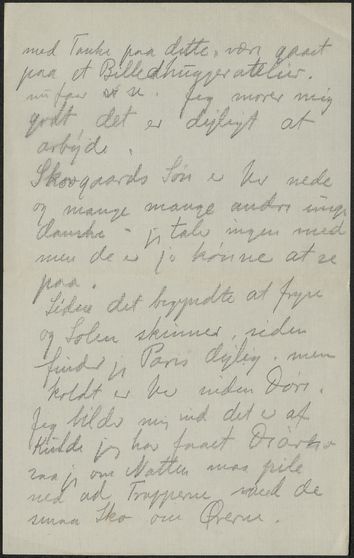 med Tanke paa dette, været gaaet
paa et Billedhuggeratelier.
nu faar vi se. Jeg morer mig
godt det er dejligt at
arbejde.
Skovgaards Søn er her nede
og mange mange andre unge
danske – jeg taler ingen med
men de er jo kønne at se
paa.
Siden det begyndte at fryse
og Solen skinner, siden
finder jeg Paris dejlig. men
koldt er her inden Døre.
Jeg bilder mig ind det er af
Kulde jeg har faaet Diarhe
saa jeg om Natten maa pile
ned ad Trapperne med de
smaa Sko om Ørerne.